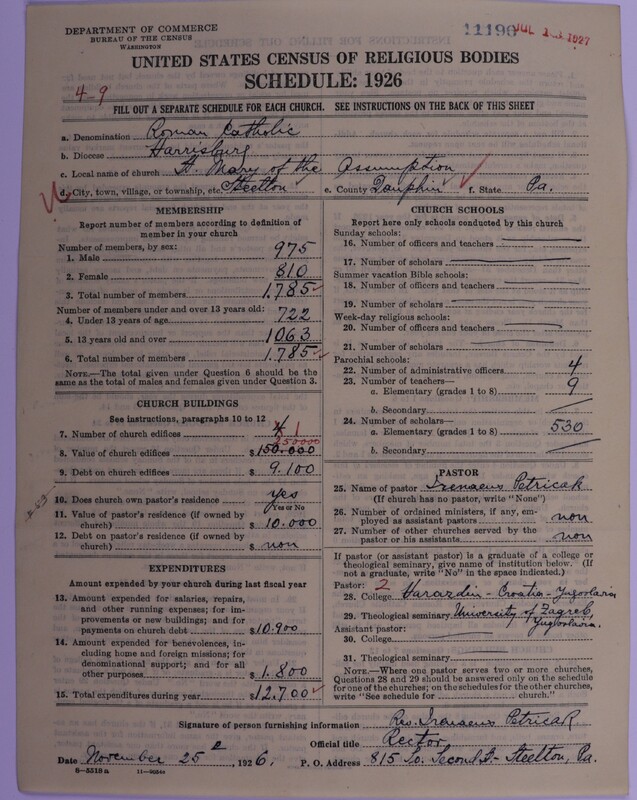 DEPARTMENT OF COMMERCE
BUREAU OF THE CENSUS
WASHINGTON
11190 JUL 1927
UNITED STATES CENSUS OF RELIGIOUS BODIES
SCHEDULE: 1926
4-9
FILL OUT A SEPARATE SCHEDULE FOR EACH CHURCH. SEE INSTRUCTIONS ON THE BACK OF THIS SHEET
a. Denomination Roman Catholic
b. Diocese Harrisburg
c. Local name of church St. Mary of the Assumption
d. City, town, village, or township, etc. Steelton e. County Dauphin f. State Pa.
MEMBERSHIP
Report number of members according to definition of
member in your church
Number of members, by sex:
1. Male 975
2. Female 810
3. Total number of members 1,785
Number of members under and over 13 years old:
4. Under 13 years of age 722
5. 13 years old and over 1063
6. Total number of members 1,785
NOTE.—The total given under Question 6 should be the
same as the total of males and females given under Question 3.
CHURCH BUILDINGS
See instructions, paragraphs 10 to 12
7. Number of church edifices 4 1
250000
8. Value of church edifices $150.000
9. Debt on church edifices $ 9.100
10. Does church own pastor's residence yes
Yes or No
11. Value of pastor's residence (if owned by
church) $ 10.000
12. Debt on pastor's residence (if owned by
church) $ non
EXPENDITURES
Amount expended by your church during last fiscal year
13. Amount expended for salaries, repairs,
and other running expenses; for im-
provements or new buildings; and for
payments on church debt $10.900
14. Amount expended for benevolences, in-
cluding home and foreign missions; for
denominational support; and for all
other purposes $ 1.800
15. Total expenditures during year $12.700
CHURCH SCHOOLS
Report here only schools conducted by this church
Sunday schools:
16. Number of officers and teachers
17. Number of scholars
Summer vacation Bible schools:
18. Number of officers and teachers
19. Number of scholars
Week-day religious schools:
20. Number of officers and teachers
21. Number of scholars
Parochial schools:
22. Number of administrative officers 4
23. Number of teachers—
a. Elementary (grades 1 to 8) 9
b. Secondary
24. Number of scholars—
a. Elementary (grades 1 to 8) 530
b. Secondary
PASTOR
25. Name of pastor Irenaeus Petricak
(If church has no pastor, write "None")
26. Number of ordained ministers, if any, em-
ployed as assistant pastors non
27. Number of other churches served by the
pastor or his assistants non
If pastor (or assistant pastor) is a graduate of a college or
theological seminary, give name of institution below. (If
not a graduate, write "No" in the space indicated.)
Pastor: 2
28. College Varazdin - Croatia - Yugoslavia
29. Theological seminary University of Zagreb
Yugoslavia.
Assistant pastor:
30. College
31. Theological seminary
NOTE.—Where one pastor serves two or more churches,
Questions 28 and 29 should be answered only on the schedule
for one of the churches; on the schedules for the other churches,
write "See schedule for church."
Signature of person furnishing information Rev. Irenaeus Petricak
Official title Rector
Date November 25, 1926. P. O. Address 815 So. Second St- Steelton, Pa.
6—5518a 11—9034a